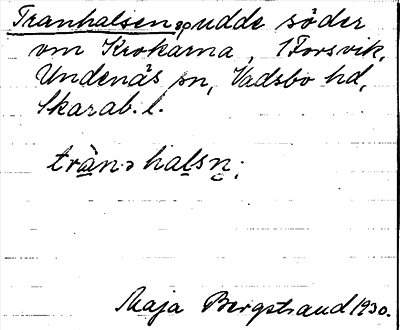 Tranhalsen, udde söder
om Krokarna, 1 Forsvik,
Undenäs sn, Vadsbo hd,
Skarab. l.
trànɔ halsn;
Maja Bergstrand 1930.